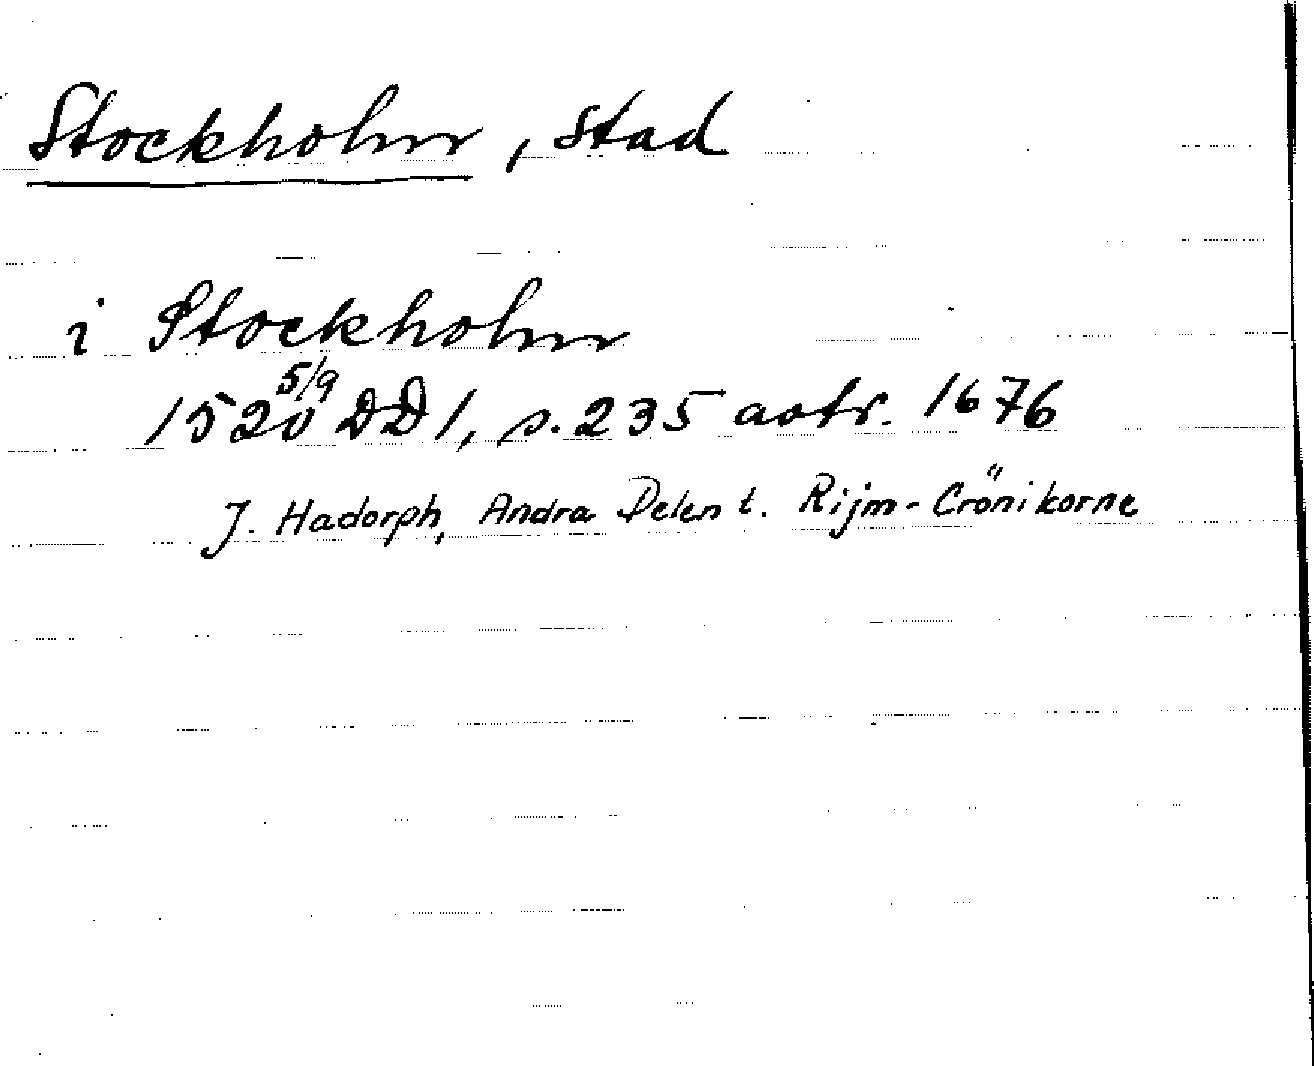 Stockholm, stad
i Stockholm
1520 5/9 DD 1, s. 235 avtr. 1676
J. Hadorph, Andra Delen t. Rijm-Crönikorne